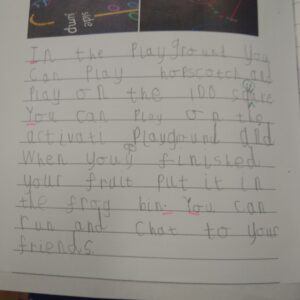 side
jump
In the playground you
can play hopscotch and
play on the 100
You can play on the
activati playground and
When youy finished
your fruit put it in
the froig bin. You can
run and chat to your
friends.